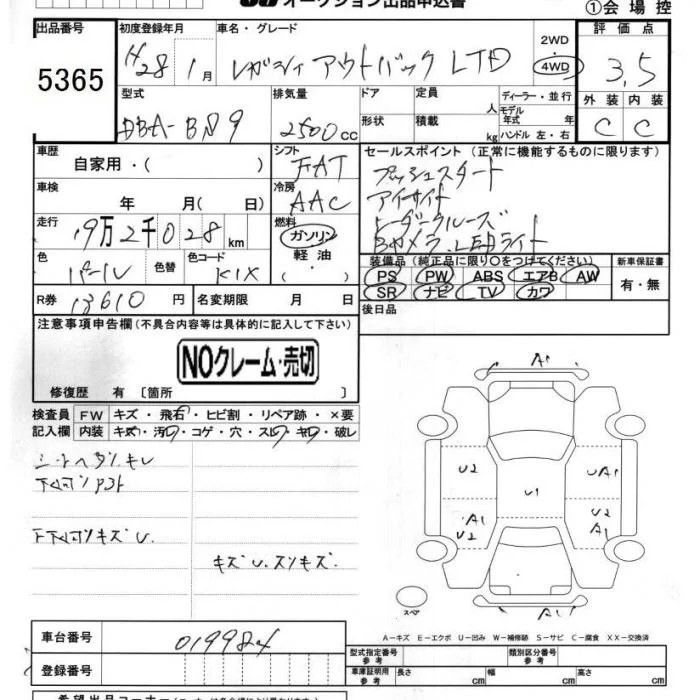 オークション出品申込書
①会場控
出品番号 初度登録年月 車名・グレード 評価点
5365 H28 1月 レガシィ アウトバック LTD 2WD 4WD 3.5
型式 排気量 ドア 定員 人 ディーラー・並行 外装 内装
モデル年式 年式
DBA-BS9 2500cc 形状 積載 kg ハンドル 左・右 C C
車歴 シフト セールスポイント (正常に機能するものに限ります)
自家用・( ) FAT プッシュスタート
車検 冷房 アイサイト
年 月( 日) AAC レーダークルーズ
走行 燃料 Bカメラ.LEDライト
9万2千028km ガソリン
軽油
・
( )
色 色替 色コード 装備品 (純正品に限り○をつけてください) 新車保証書
パール K1X PS PW ABS エアB AW 有・無
SR ナビ TV カワ
R券 13610円 名変期限 月 日 後日品
注意事項申告欄(不具合内容等は具体的に記入して下さい)
NOクレーム・売切
修復歴 有 [箇所 ]
検査員 FW キズ・飛石・ヒビ割・リペア跡・×要
記入欄 内装 キズ・汚レ・コゲ・穴・スレ・キレ・破レ
シートヘタリ.キレ
下廻リ
下廻リキズU.
キズU.スリキズ.
A1
U2 UA1
U1
A1 U2
U2 A1
A1
スペア
A-キズ E-エクボ U-凹み W-補修跡 S-サビ C-腐食 XX-交換済
車台番号 019984
型式指定番号 参考 類別区分番号 参考
登録番号 車庫証明用 参考 長さ cm 幅 cm 高さ cm